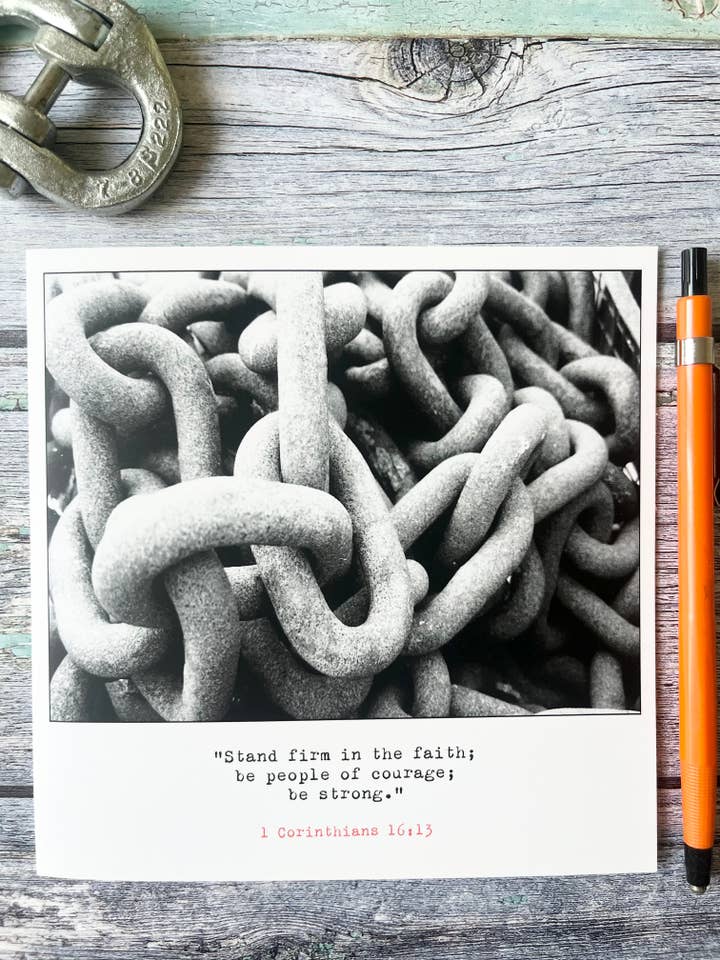 7-8 β 222
"Stand firm in the faith;
be people of courage;
be strong."
1 Corinthians 16:13